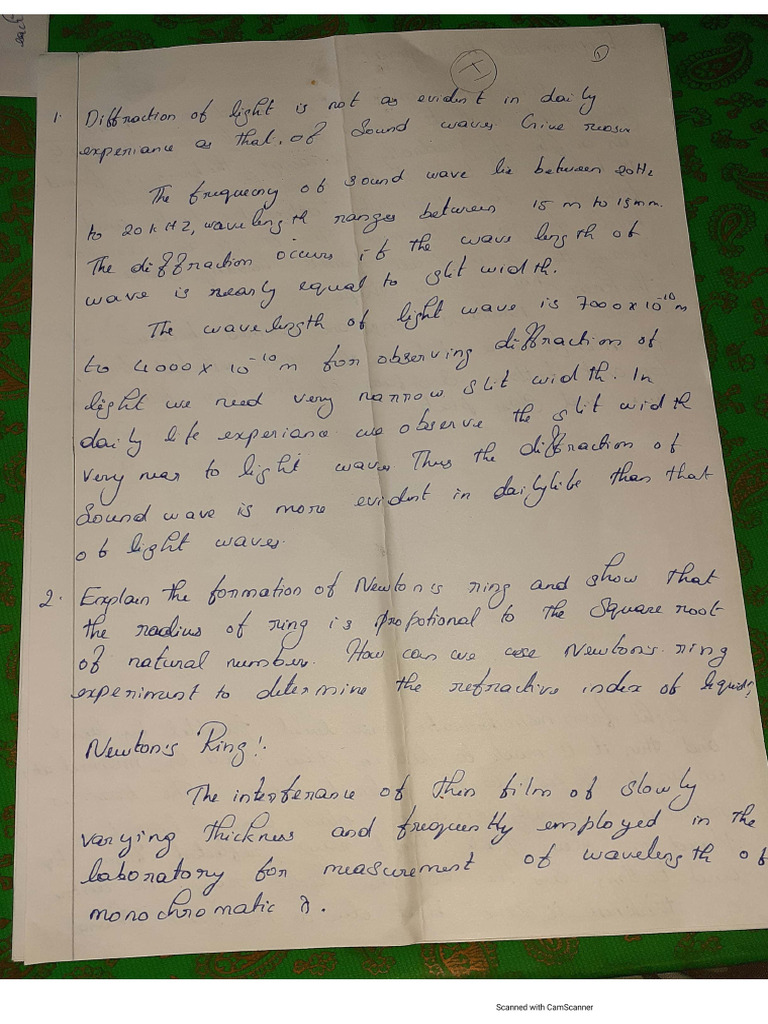 each
1
1. Diffraction of light is not as evident in daily
experiance as that, of sound waves Give reason
The frequency of sound wave lie between 20Hz
to 20kHZ, wavelength ranges between 15 m to 15mm.
The diffraction occurs if the wave length of
wave is nearly equal to slit width.
The wavelength of light wave is 7000x10⁻¹⁰m
to 4000x10⁻¹⁰m for observing diffraction of
light we need very narrow slit width. In
daily life experiance we observe the slit width
very near to light waves Thus the diffraction of
sound wave is more evident in dailylife than that
of light waves.
2. Explain the formation of Newton's ring and show that
the radius of ring is propotional to the square root
of natural number. How can we use Newton's ring
experiment to determine the refractive index of liquid?
Newton's Ring!.
The interferance of thin film of slowly
varying thickness and frequently employed in the
laboratory for measurement of wavelength of
monochromatic λ.
Scanned with CamScanner